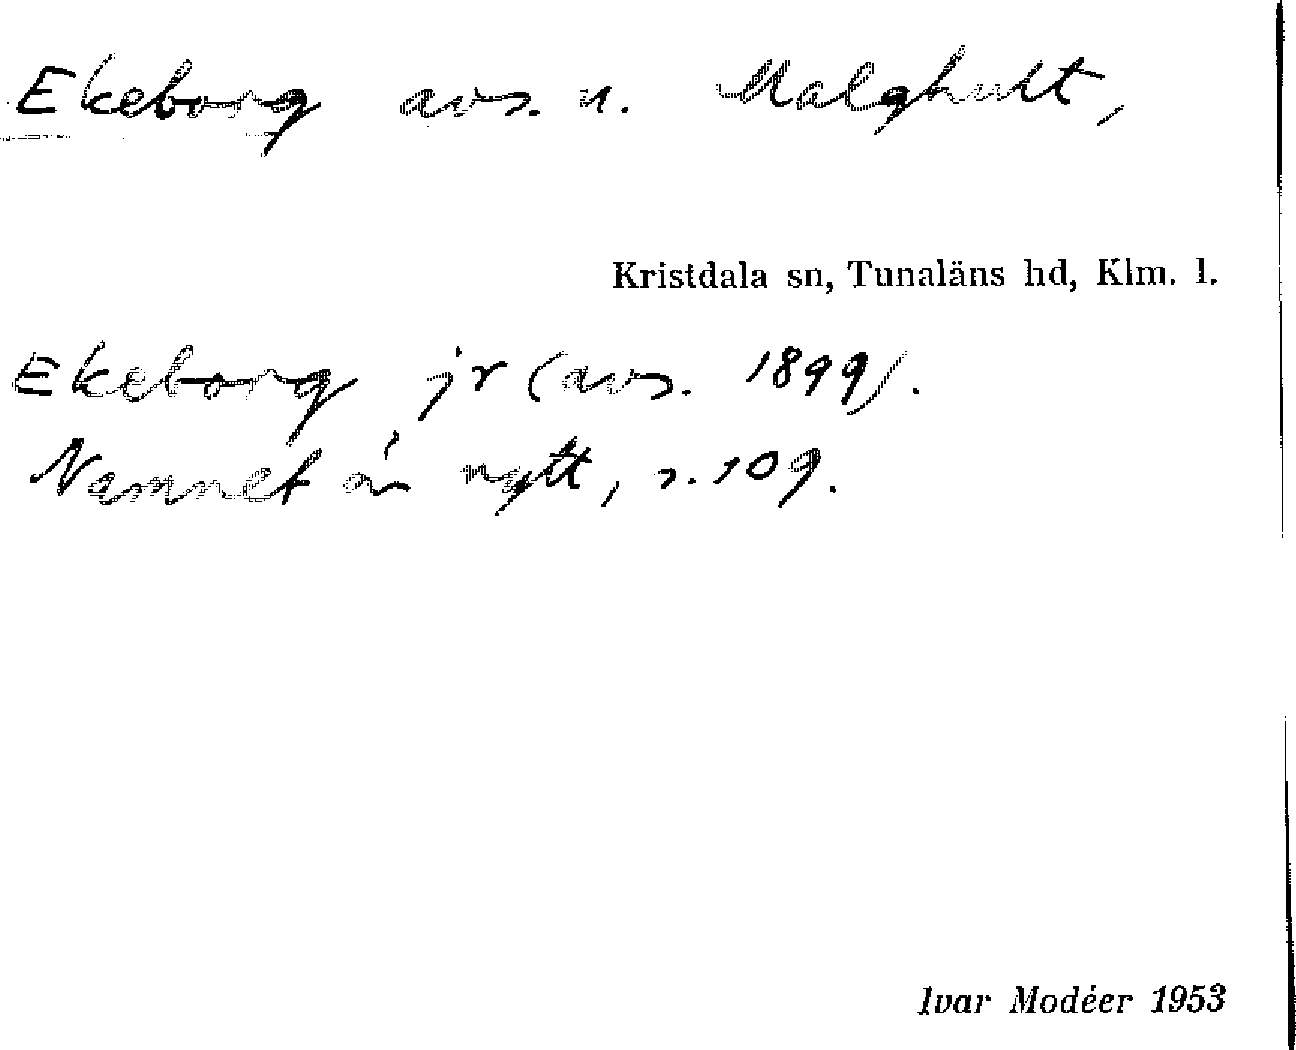 Ekeborg avs. u. Malghult,
Kristdala sn, Tunaläns hd, Klm. l.
Ekeborg jr (avs. 1899).
Namnet är nytt, s. 109.
Ivar Modéer 1953